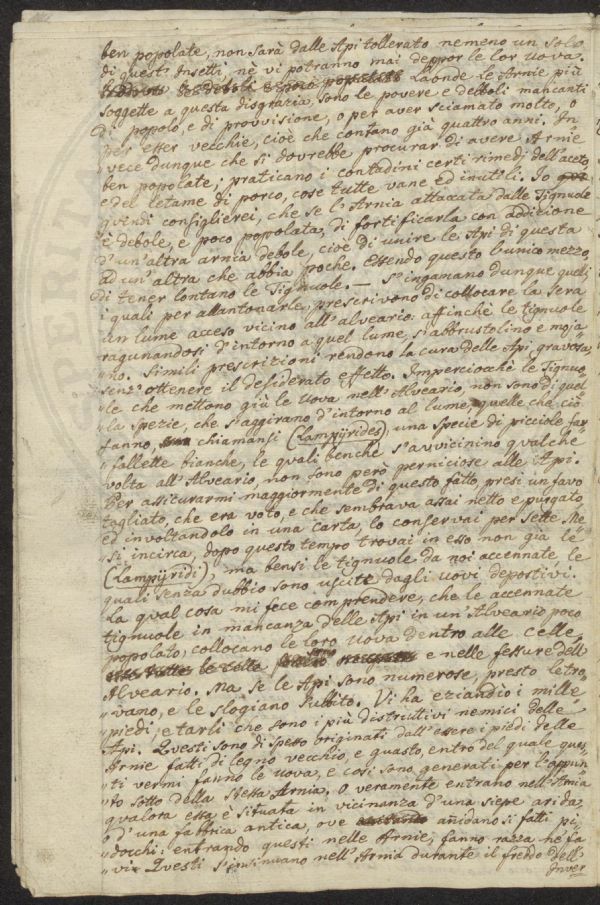 ben popolate, non sarà dalle Api tollerato nemeno un solo
di questi Insetti, nè vi potranno mai deppor le lor uova.
Laonde le Arnie più
soggette a questa disgrazia, sono le povere e debboli mancanti
di popolo, e di provvisione, o per aver sciamato molto, o
per esser vecchie, cioè che contano già quattro anni. In
vece dunque che si dovrebbe procurar di avere Arnie
ben popolate; praticano i contadini certi rimedj dell'aceto
e del letame di porco, cose tutte vane ed inutili. Io
quindi consiglierei, che se l'Arnia attaccata dalle Tignuole
è debole, e poco poppolata, di fortificarla con addizione
d'un'altra arnia debole, cioè di unire le Api di questa
ad un'altra che abbia poche. Essendo questo l'unico mezzo,
di tener lontano le Tignuole. — S'ingannano dunque quelli
i quali per allantonarle, prescrivono di collocare la sera
un lume acceso vicino all'alveario: affinche le tignuole
ragunandosi d'intorno a quel lume, s'abbrustolino e moja
"no. Simili prescrizioni rendono la cura delle Api gravosa,
senz'ottenere il desiderato effetto. Impercioche le Tignuo
le che mettono già le uova nell'Alveario, non sono di quel
"la spezie, che s'aggirano d'intorno al lume, quelle che ciò
fanno, chiamansi (Lampÿrides) una specie di picciole far
"fallette bianche, le quali benche s'avvicinino qualche
volta all'Alveario, non sono però perniciose alle Api.
Per assicurarmi maggiormente di questo fatto, presi un favo
tagliato, che era voto, e che sembrava assai netto e purgato
ed involtandolo in una carta, lo conservai per sette Me
"si incirca, dopo questo tempo trovai in esso non già le
(Lampÿridi), ma bensi le tignuole da noi accennate le
quali senza dubbio sono uscite dagli uovi depostivi.
La qual cosa mi fece comprendere, che le accennate
tignuole in mancanza delle Api in un'Alveario poco
propolato, collocano le loro uova dentro alle celle,
e nelle fessure dell'
Alveario. Ma se le Api sono numerose, presto le tro
"vano, e le slogiano subbito. Vi ha eziandio i mille
"piedi, e tarli che sono i più distruttivi nemici delle
Api. Questi sono di spesso originati dall'essere i piedi delle
Arnie fatti di legno vecchio, e guasto, entro del quale ques
"ti vermi fanno le uova, e cosi sono generati per l'appun
"to sotto della stessa Arnia. O veramente entrano nell'Arnia
qualora essa è situata in vicinanza d'una siepe arida,
"d'una fabbrica antica, ove anidano si fatti pi
"docchi: entrando questi nelle Arnie, fanno razza ne' fa
"vi. Questi s'insinuano nell'Arnia durante il freddo dell'
Inver